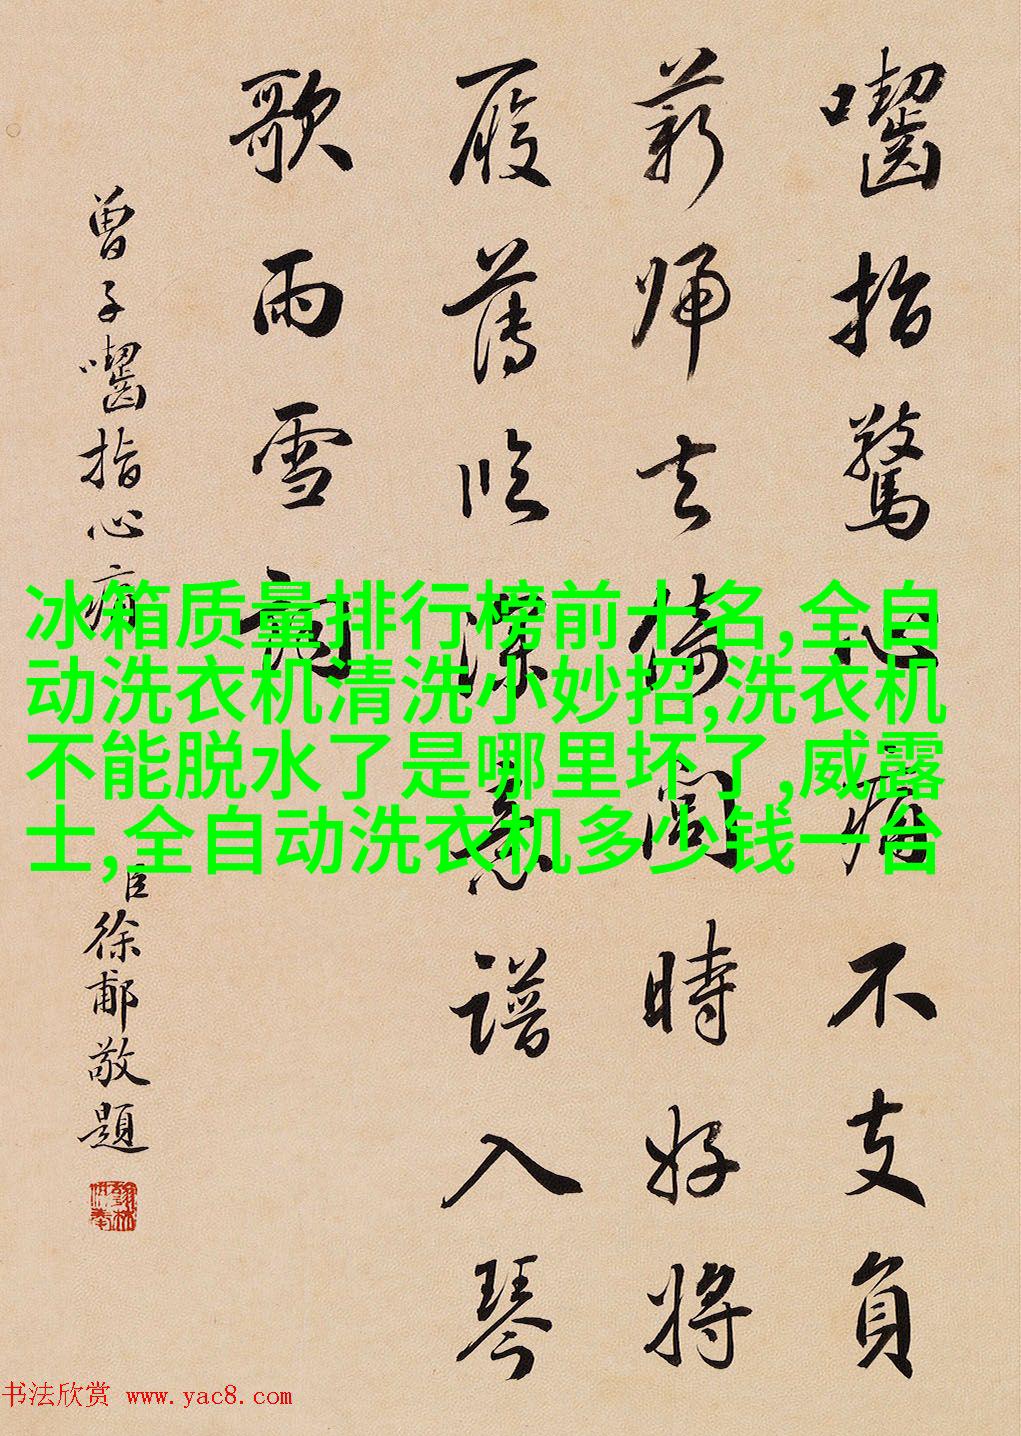 囓指驚心痛不支負
薪歸去倚閭時好將
履薄臨深意譜入琴
歌雨雪詞
曾子囓指心痛
臣徐郙敬題
冰箱质量排行榜前十名,全自
动洗衣机清洗小妙招,洗衣机
不能脱水了是哪里坏了,威露
士,全自动洗衣机多少钱一台
书法欣赏 www.yac8.com